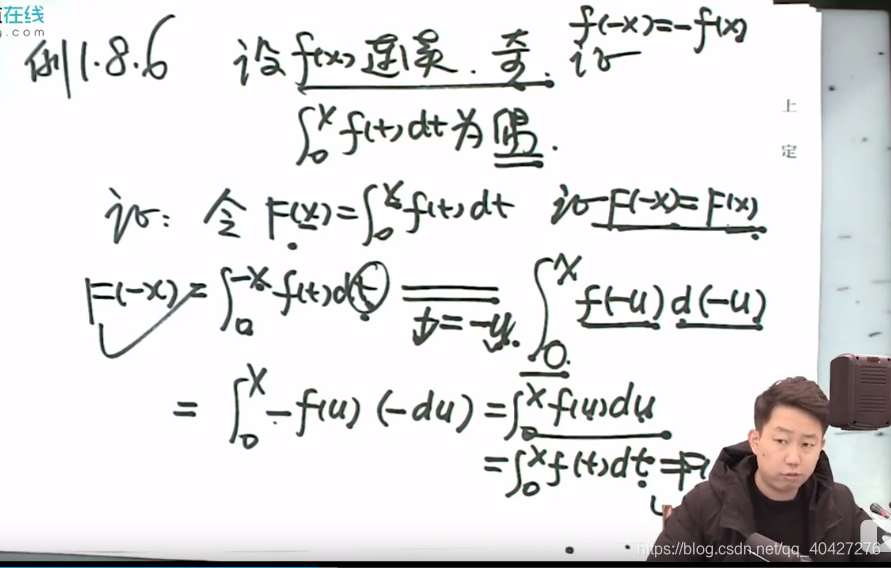 在线
g.com
例1.8.6 设f(x)连续.奇. f(-x)=-f(x)
证
∫₀ˣ f(t)dt为偶.
上
定
证: 令 F(x)=∫₀ˣ f(t)dt 证 F(-x)=F(x)
F(-x)=∫₀⁻ˣ f(t)dt ══ t=-u. ∫₀ˣ f(-u)d(-u)
=∫₀ˣ -f(u)(-du)=∫₀ˣ f(u)du
=∫₀ˣ f(t)dt=F(
https://blog.csdn.net/qq_40427276